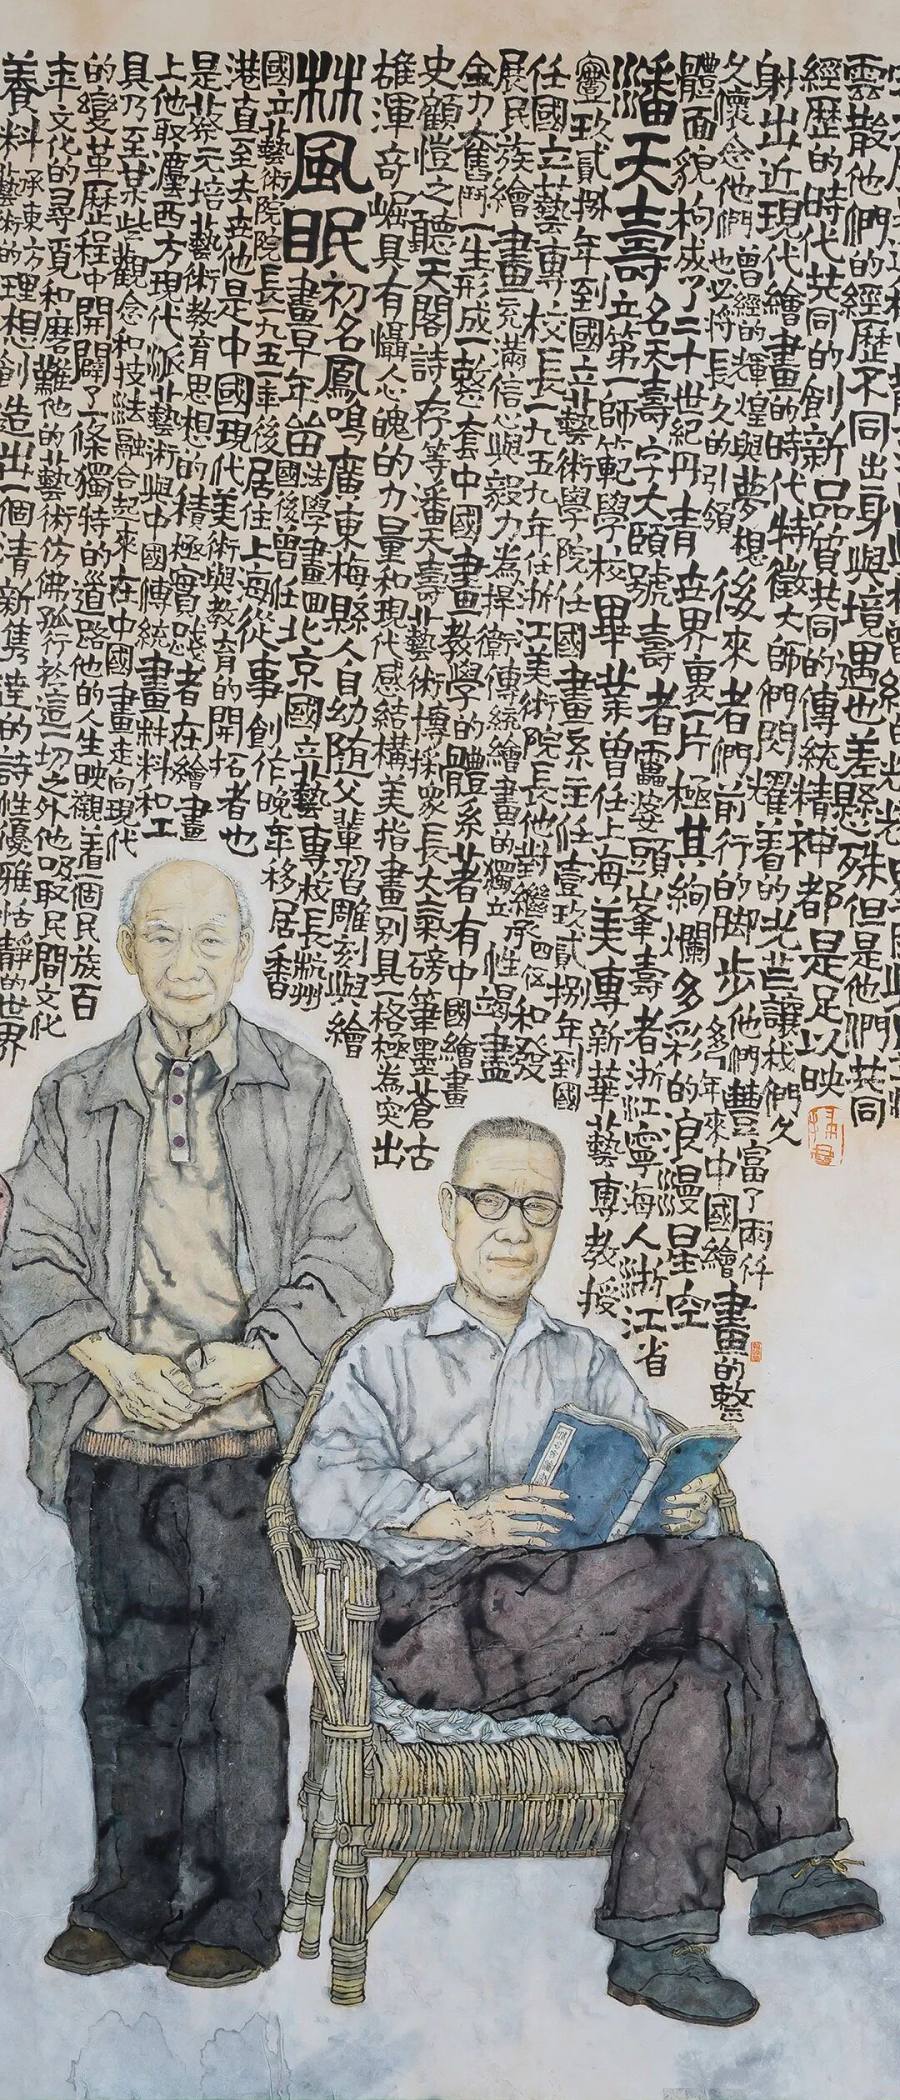 雲散他們的經歷不同出身與境遇也差懸殊但是他們共同
經歷的時代共同的創新品質共同的傳統精神都是足以映
射出近現代繪畫的時代特徵大師們閃耀着的光芒讓我們久
久懷念他們曾經的輝煌與夢想也必將長久的引領後來者們前行的脚步他們豐富了兩仟多年來中國繪畫的整
體面貌构成了二十世紀丹青世界裏一片極其絢爛多彩的浪漫星空
潘天壽名天壽字大頤號壽者靁婆頭峯壽者浙江寧海人浙江省
立第一師範學校畢業曾任上海美專新華藝專教授
壹玖貳捌年到國立藝術學院任國畫系主任壹玖貳捌年到國
任國立藝專校長一九五九年任浙江美術院長他對繼承和發
展民族繪畫充滿信心與毅力為捍衛傳統繪畫的獨立性竭盡
全力奮鬥一生形成一整套中國畫教學的體系著有中國繪畫
史顧愷之聽天閣詩存等潘天壽藝術博採眾長大氣磅礴筆墨蒼古
雄渾奇崛具有懾人心魄的力量和現代感結構美指畫別具一格極為突出
林風眠初名鳳鳴廣東梅縣人自幼随父輩習雕刻與繪
畫早年留法學畫回國後曾任北京國立藝專校長杭州
國立藝術院院長一九五一年後居住上海從事創作晚年移居香
港直至去世他是中國現代美術與教育的開拓者也
是蔡元培藝術教育思想的積極實踐者在繪畫
上他取麈西方現代派藝術與中國傳統畫料料和工
具乃至某些觀念和技法融合起來在中國畫走向現代
的變革歷程中開闢了一條獨特的道路他的人生映襯着一個民族百
年文化的尋覓和磨難他的藝術仿佛孤行於這一切之外他吸取民間文化
養料承東方藝術的理想創造出一個清新雋逹的詩性優雅恬靜的世界